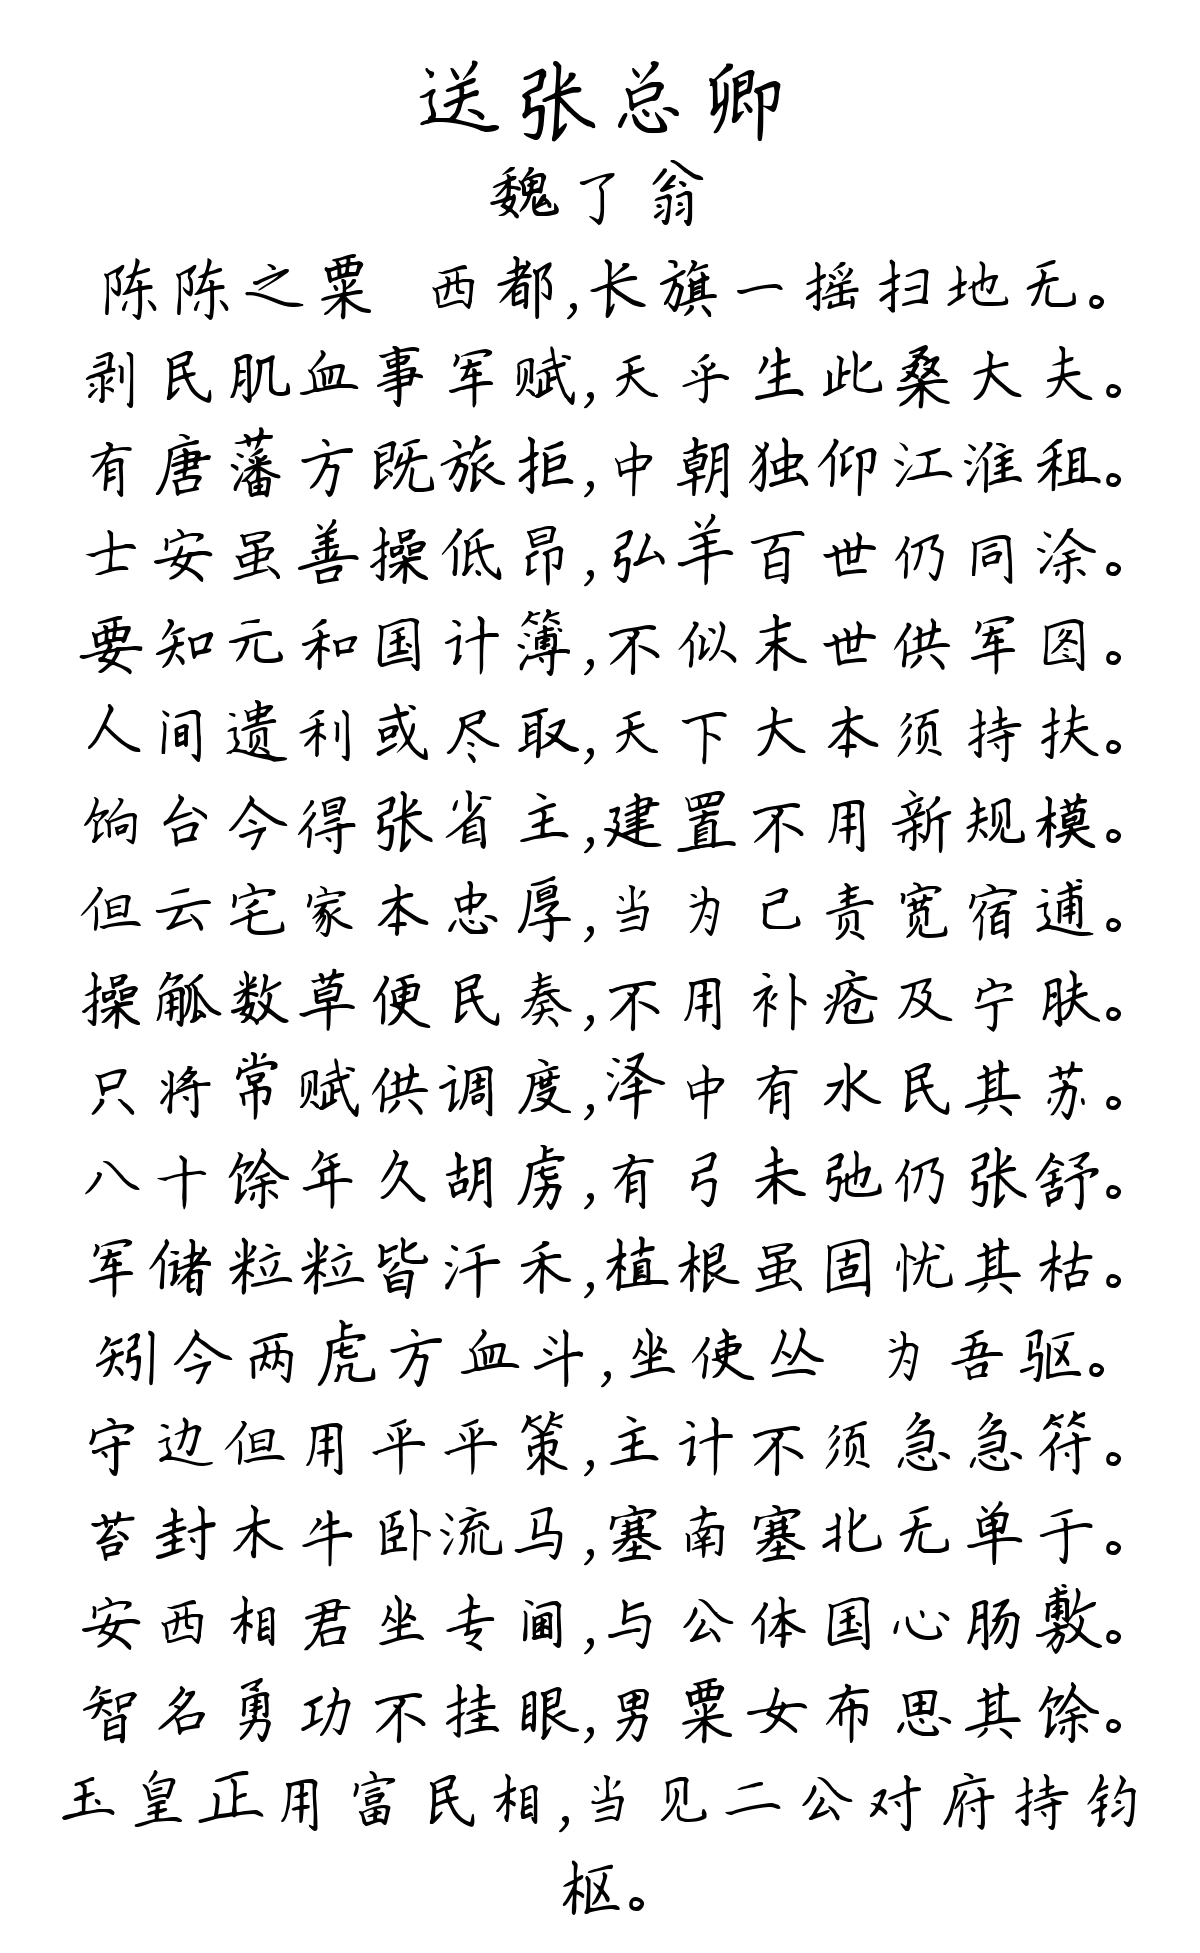 送张总卿
魏了翁
陈陈之粟 西都,长旗一摇扫地无。
剥民肌血事军赋,天乎生此桑大夫。
有唐藩方既旅拒,中朝独仰江淮租。
士安虽善操低昂,弘羊百世仍同涂。
要知元和国计簿,不似末世供军图。
人间遗利或尽取,天下大本须持扶。
饷台今得张省主,建置不用新规模。
但云宅家本忠厚,当为己责宽宿逋。
操觚数草便民奏,不用补疮及宁肤。
只将常赋供调度,泽中有水民其苏。
八十馀年久胡虏,有弓未弛仍张舒。
军储粒粒皆汗禾,植根虽固忧其枯。
矧今两虎方血斗,坐使丛 为吾驱。
守边但用平平策,主计不须急急符。
苔封木牛卧流马,塞南塞北无单于。
安西相君坐专阃,与公体国心肠敷。
智名勇功不挂眼,男粟女布思其馀。
玉皇正用富民相,当见二公对府持钧
枢。